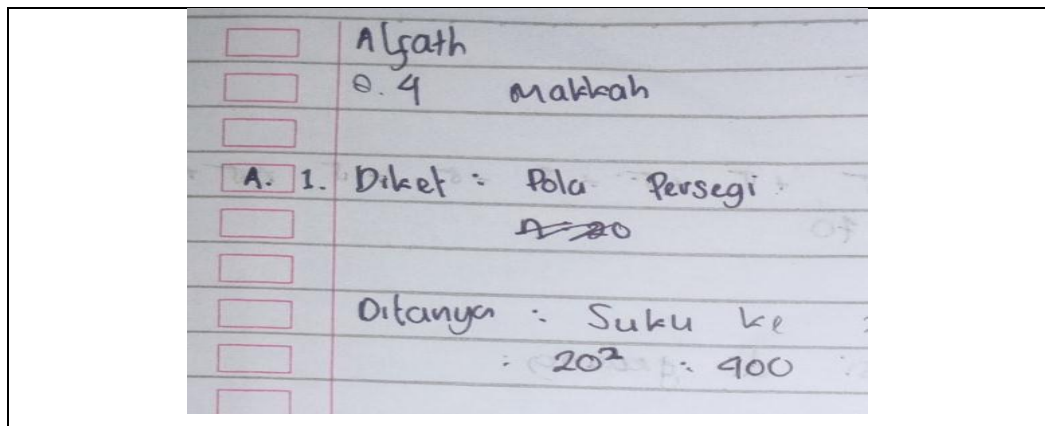 Alfath
8.4 Makkah
A. 1. Diket : Pola Persegi
Ditanya : Suku ke :
: 20² : 400